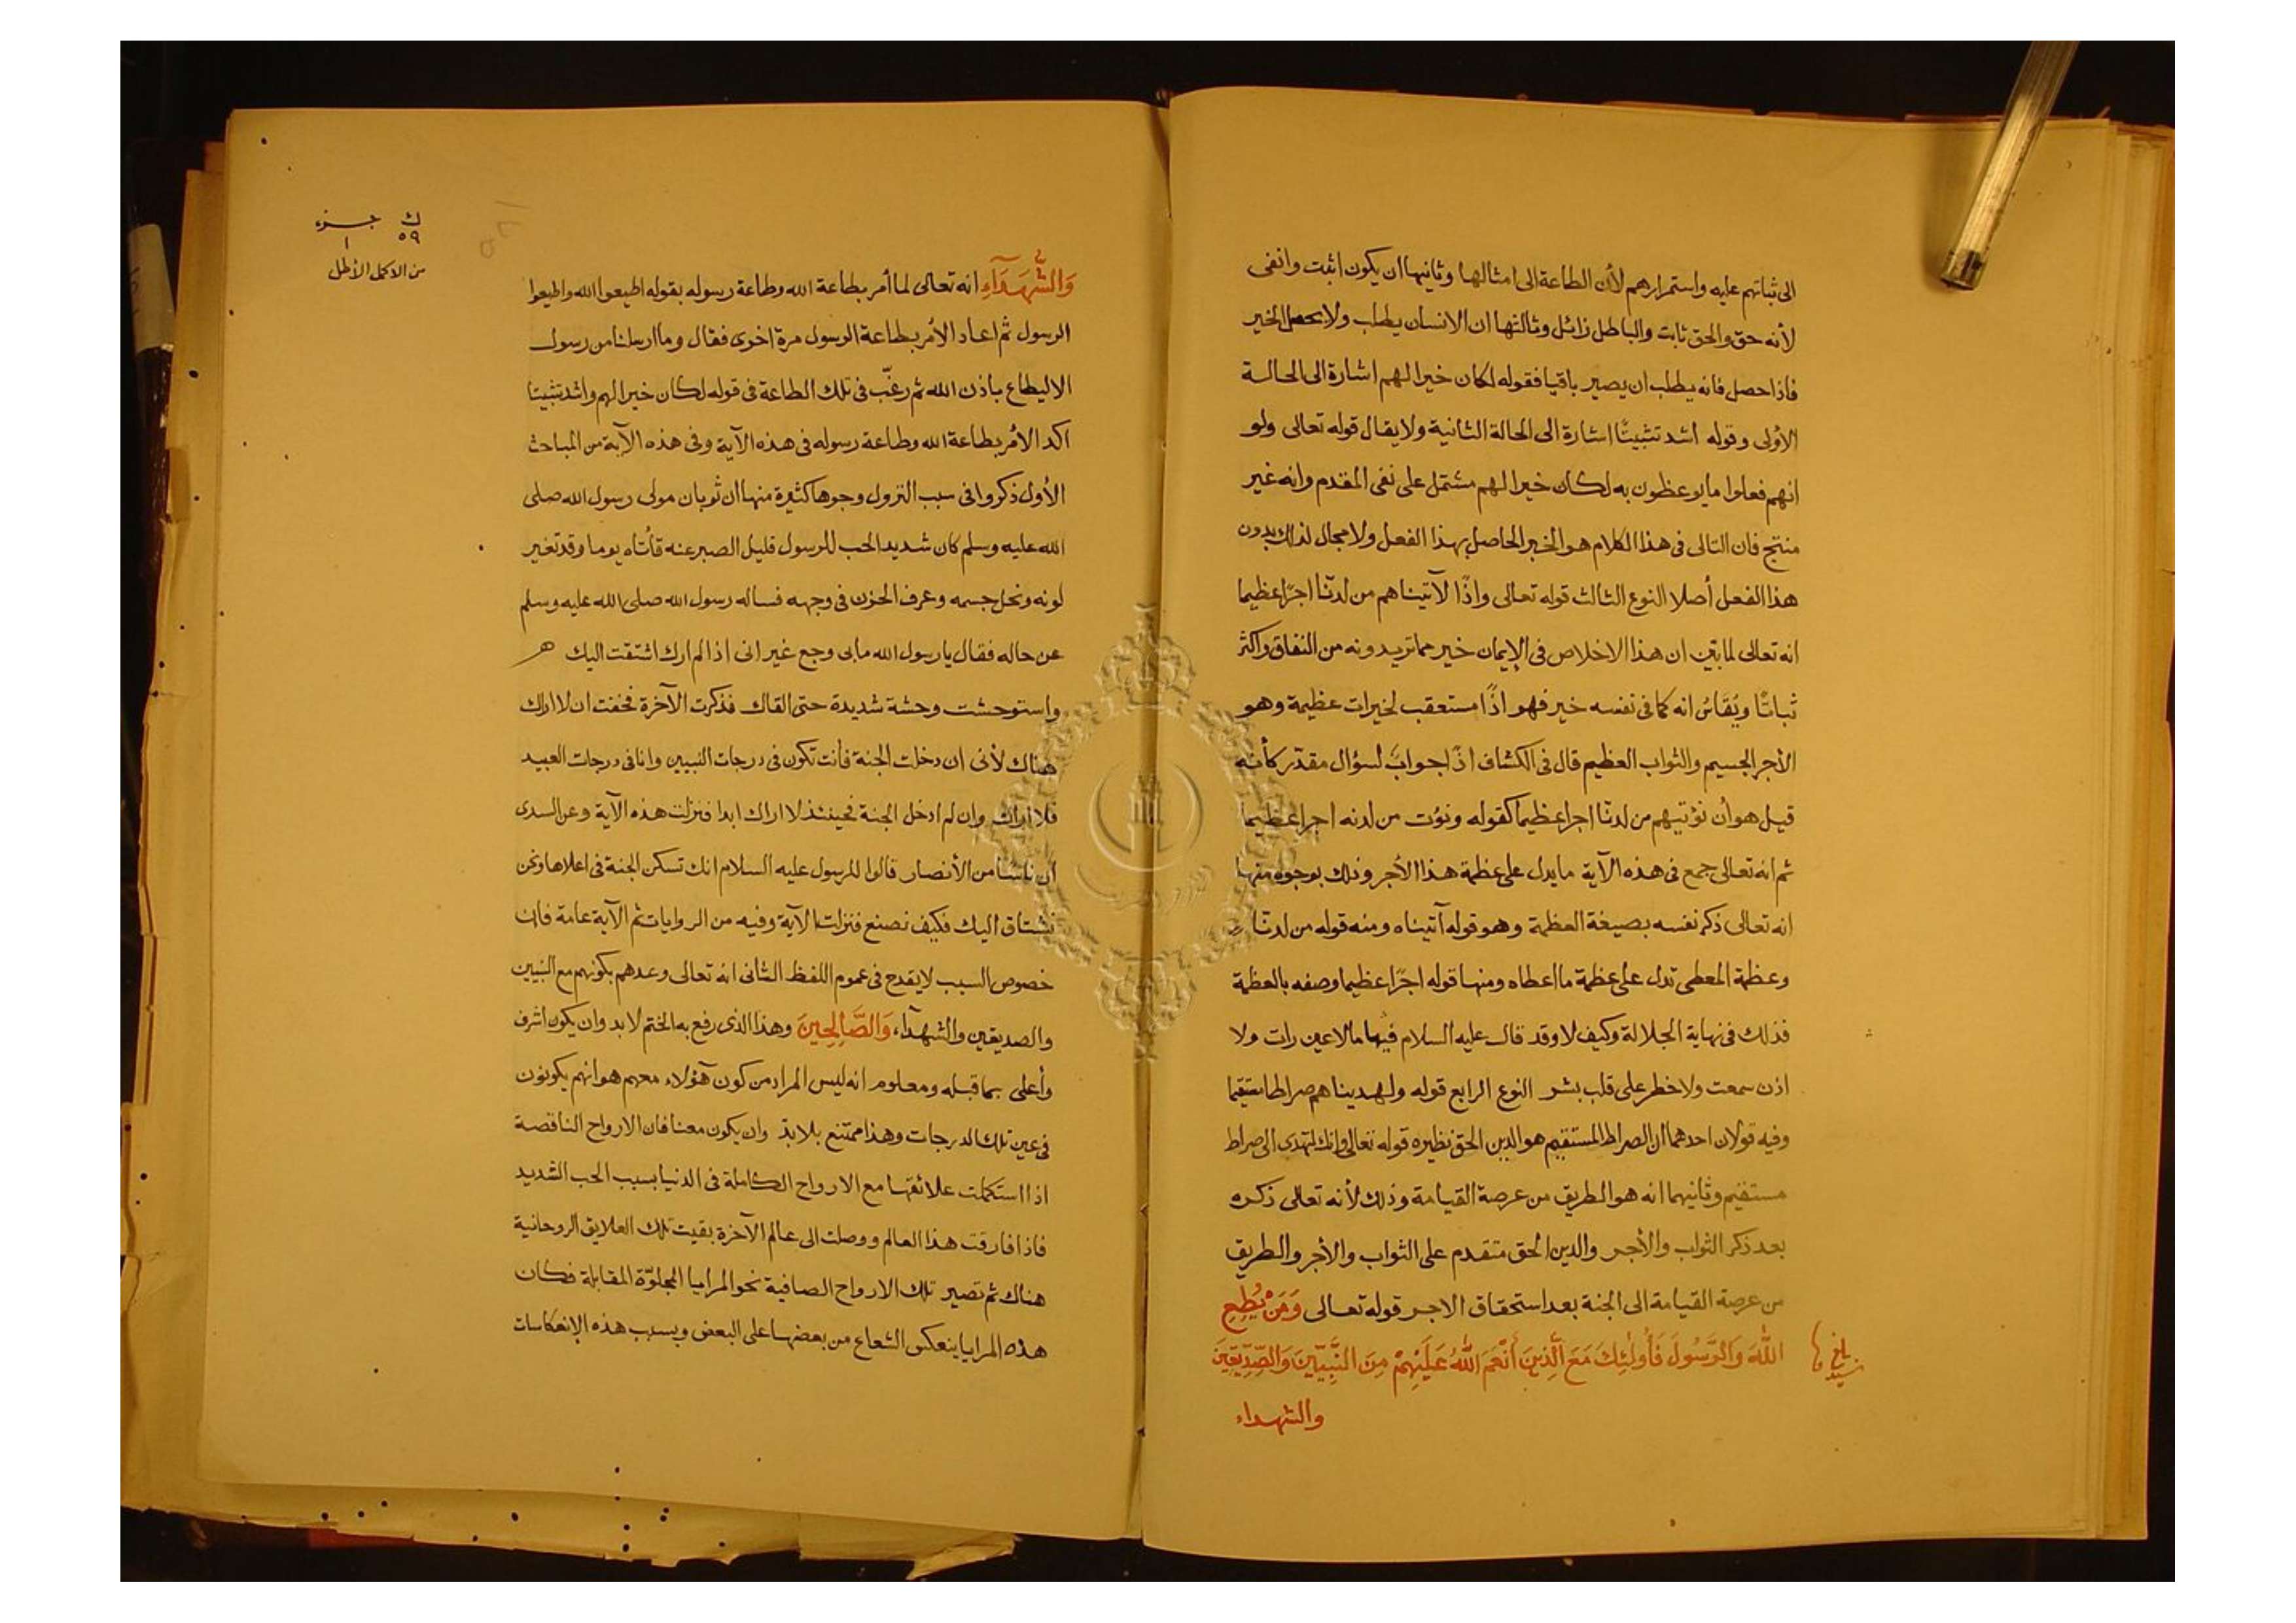 الى ثباتهم عليه واستمرارهم لأن الطاعة الى امثالها وثانيها ان يكون اثبت وانفى
لأنه حق والحق ثابت والباطل زائل وثالثها ان الانسان يطلب ولا يحصل الخير
فاذا حصل فانه يطلب ان يصير باقيا فقوله لكان خيرا لهم اشارة الى الحالة
الأولى وقوله اشد تثبيتًا اشارة الى الحالة الثانية ولا يقال قوله تعالى ولو
انهم فعلوا ما يوعظون به لكان خيرا لهم مشتمل على نفى المقدم وانه غير
منتج فان التالى فى هذا الكلام هو الخير الحاصل بهذا الفعل ولا مجال لذلك بدون
هذا الفعل أصلا النوع الثالث قوله تعالى واذًا لآتيناهم من لدنّا اجرًا عظيما
انه تعالى لما بيّن ان هذا الاخلاص فى الإيمان خير مما تريدونه من النفاق واكثر
ثباتًا ويُقَاسُ انه كما فى نفسه خير فهو اذًا مستعقب لخيرات عظيمة وهو
الأجر الجسيم والثواب العظيم قال فى الكشاف اذًا جواب لسؤال مقدّر كأنه
قيل هو أن نؤتيهم من لدنّا اجرا عظيما كقوله ونؤت من لدنه اجرا عظيما
ثم انه تعالى جمع فى هذه الآية ما يدل على عظمة هذا الأجر وذلك بوجوه منها
انه تعالى ذكر نفسه بصيغة العظمة وهو قوله آتيناه ومنه قوله من لدنّا
وعظمة المعطى تدل على عظمة ما اعطاه ومنها قوله اجرًا عظيما وصفه بالعظمة
فذلك فى نهاية الجلالة وكيف لا وقد قال عليه السلام فيها ما لا عين رات ولا
اذن سمعت ولا خطر على قلب بشر النوع الرابع قوله ولهديناهم صراطا مستقيما
وفيه قولان احدهما ان الصراط المستقيم هو الدين الحق نظيره قوله تعالى وانك لتهدى الى صراط
مستقيم وثانيهما انه هو الطريق من عرصة القيامة وذلك لأنه تعالى ذكره
بعد ذكر الثواب والأجر والدين الحق متقدم على الثواب والأجر والطريق
من عرصة القيامة الى الجنة بعد استحقاق الاجر قوله تعالى وَمَنْ يُطِعِ
اللّٰهَ وَالرَّسُولَ فَأُولَٰئِكَ مَعَ الَّذِينَ أَنْعَمَ اللّٰهُ عَلَيْهِمْ مِنَ النَّبِيِّينَ وَالصِّدِّيقِينَ
والشهداء
ك جزء
٥٩ ١
من الاكمل الأطل
وَالشُّهَدَآءِ انه تعالى لما أمر بطاعة الله وطاعة رسوله بقوله اطيعوا الله واطيعوا
الرسول ثم اعاد الأمر بطاعة الرسول مرة اخرى فقال وما ارسلنا من رسول
الا ليطاع باذن الله ثم رغّب فى تلك الطاعة فى قوله لكان خيرا لهم واشد تثبيتا
اكد الأمر بطاعة الله وطاعة رسوله فى هذه الآية وفى هذه الآية من المباحث
الأول ذكروا فى سبب النزول وجوها كثيرة منها ان ثوبان مولى رسول الله صلى
الله عليه وسلم كان شديد الحب للرسول قليل الصبر عنه فأتاه يوما وقد تغير
لونه ونحل جسمه وعرف الحزن فى وجهه فساله رسول الله صلى الله عليه وسلم
عن حاله فقال يا رسول الله ما بى وجع غير انى اذا لم ارك اشتقت اليك
واستوحشت وحشة شديدة حتى القاك فذكرت الآخرة فخفت ان لا اراك
هناك لأنى ان دخلت الجنة فأنت تكون فى درجات النبيين وانا فى درجات العبيد
فلا اراك وان لم ادخل الجنة فحينئذ لا اراك ابدا فنزلت هذه الآية وعن السدى
ان ناسًا من الأنصار قالوا للرسول عليه السلام انك تسكن الجنة فى اعلاها ونحن
نشتاق اليك فكيف نصنع فنزلت الآية وفيه من الروايات ثم الآية عامة فان
خصوص السبب لا يقدح فى عموم اللفظ الثانى انه تعالى وعدهم بكونهم مع النبيين
والصديقين والشهدآء وَالصَّالِحِينَ وهذا الذى رفع به الختم لا بد وان يكون اشرف
وأعلى بما قبله ومعلوم انه ليس المراد من كون هؤلاء معهم هو انهم يكونون
فى عين تلك الدرجات وهذا ممتنع بلا بدّ وان يكون معنا فان الارواح الناقصة
اذا استكملت علائقها مع الارواح الكاملة فى الدنيا بسبب الحب الشديد
فاذا فارقت هذا العالم ووصلت الى عالم الآخرة بقيت تلك العلايق الروحانية
هناك ثم تصير تلك الارواح الصافية نحو المرايا المجلوّة المقابلة فكان
هذه المرايا ينعكس الشعاع من بعضها على البعض وبسبب هذه الإنعكاسات